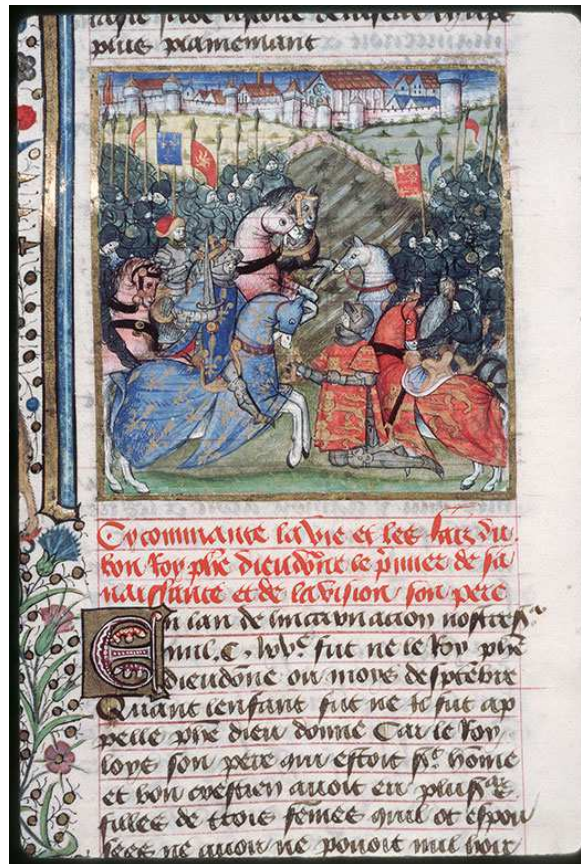 plus plainemant
Cy commance la vie et les faiz du
bon Roy phe dieudonne le pmier de sa
naissance et de la vision son pere
En lan de lincarnacion nostre sr
mil. C. lxvc fut ne le Roy phe
dieudone ou moys de septebre
Quant lenfant fut ne il fut ap
pelle phe dieu donne Car le Roy
loys son pere qui estoit st home
et bon crestien auoit eu plusrs
filles de trois femes quil ot espou
sees ne auoir ne pouoit nul hoir